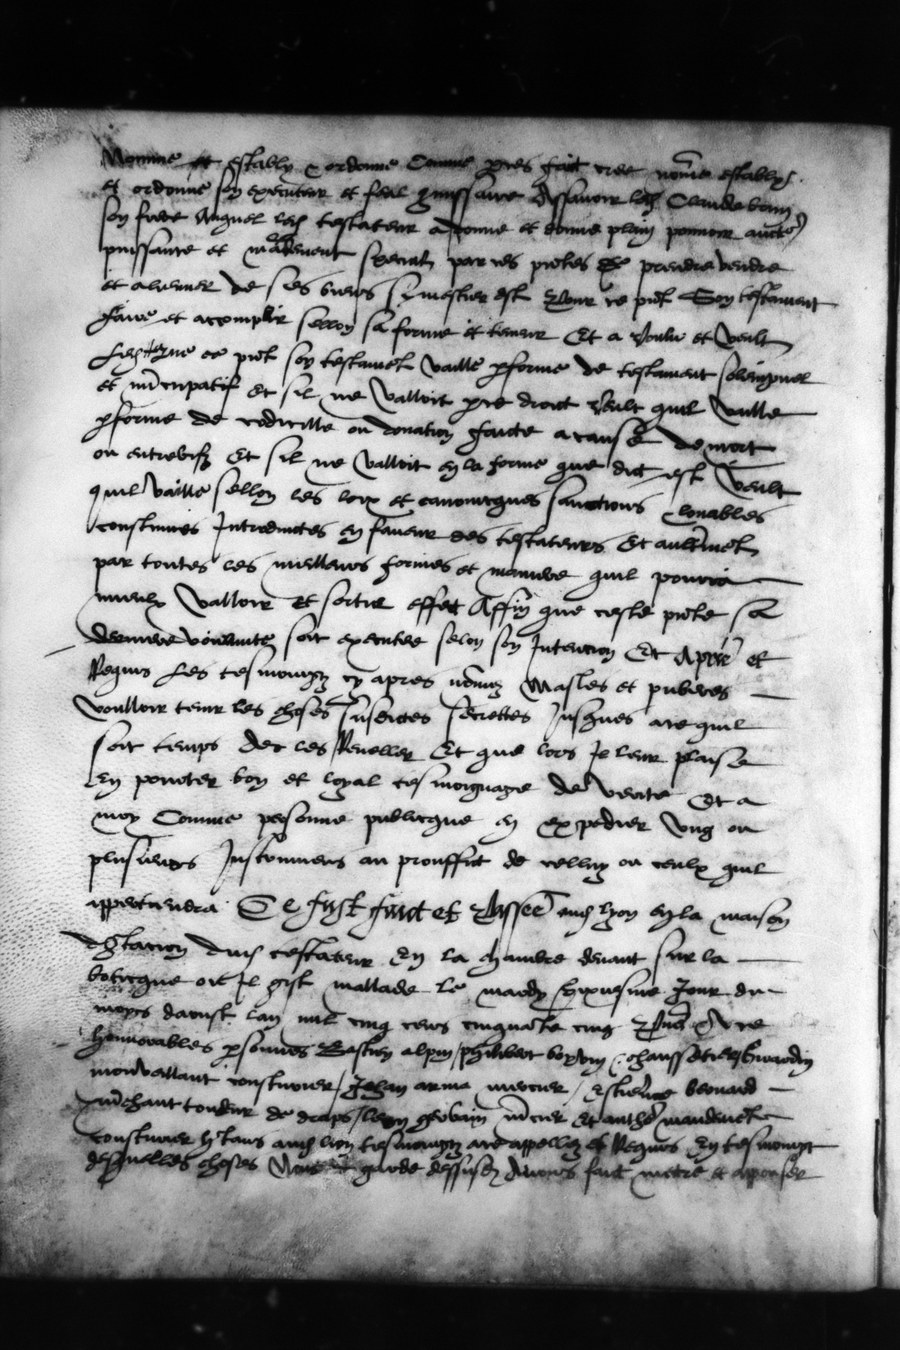 Nomme et estably & ordonne Comme pres. fait cree nomme establys
et ordonne son executeur et feal commissaire Assavoir led Claude
son frere Auquel led testateur a donne et donne plain pouvoir aucto
puissance et mandement special par ces pntes de prendre vendre
et aliener de ses biens sy mestier est Pour ce pnt Son testament
faire et accomplir sellon sa forme et teneur Et a voulu et veult
Led que ce pnt son testament vaille p forme de testament solempnel
et nuncupatif Et sil ne valloit p ce droict veult quil vaille
p forme de codicille ou donation faicte a cause de mort
ou entrevifz Et sil ne valloit en la forme que dict est veult
quil vaille sellon les loix et canonicques sanctions louables
coustumes Introduictes en faveur des testateurs Et aultrement
par toutes les meilleurs formes et maniere quil pourra
mieulx valloir Et sortir effect Affin que ceste pnte sa
derniere voulente soit executee selon son Intention Et et
Requis Les tesmoingz cy apres nommez Masles et puberes
voulloir tenir les choses susdictes secrettes Jusques a ce quil
soit temps de les Reveller Et que lors Il leur plaise
En pourter bon et loyal tesmoignage de verite Et a
moy Comme personne publicque en expedier ung ou
plusieurs Instrumens au prouffit de celluy ou ceulx quil
appertiendra Ce fust faict et Passe aud lyon en la maison
dhabitacion dud testateur En la chambre devant sur la
boticque ou Il gist mallade le mardy sixiesme Jour du
moys daoust lan mil cinq cens cinquante cinq Pns
honnorables personnes Bastien alpin / philibert chaussetier /
cousturier / Jehan arma mercier / Estienne beouard
mchant tondeur de draps / leon Et anthe
cousturier htans aud lion tesmoingz a ce appellez et Requis En tesmoingt
desquelles choses Nous garde dessusd Avons fait mettre et apposer